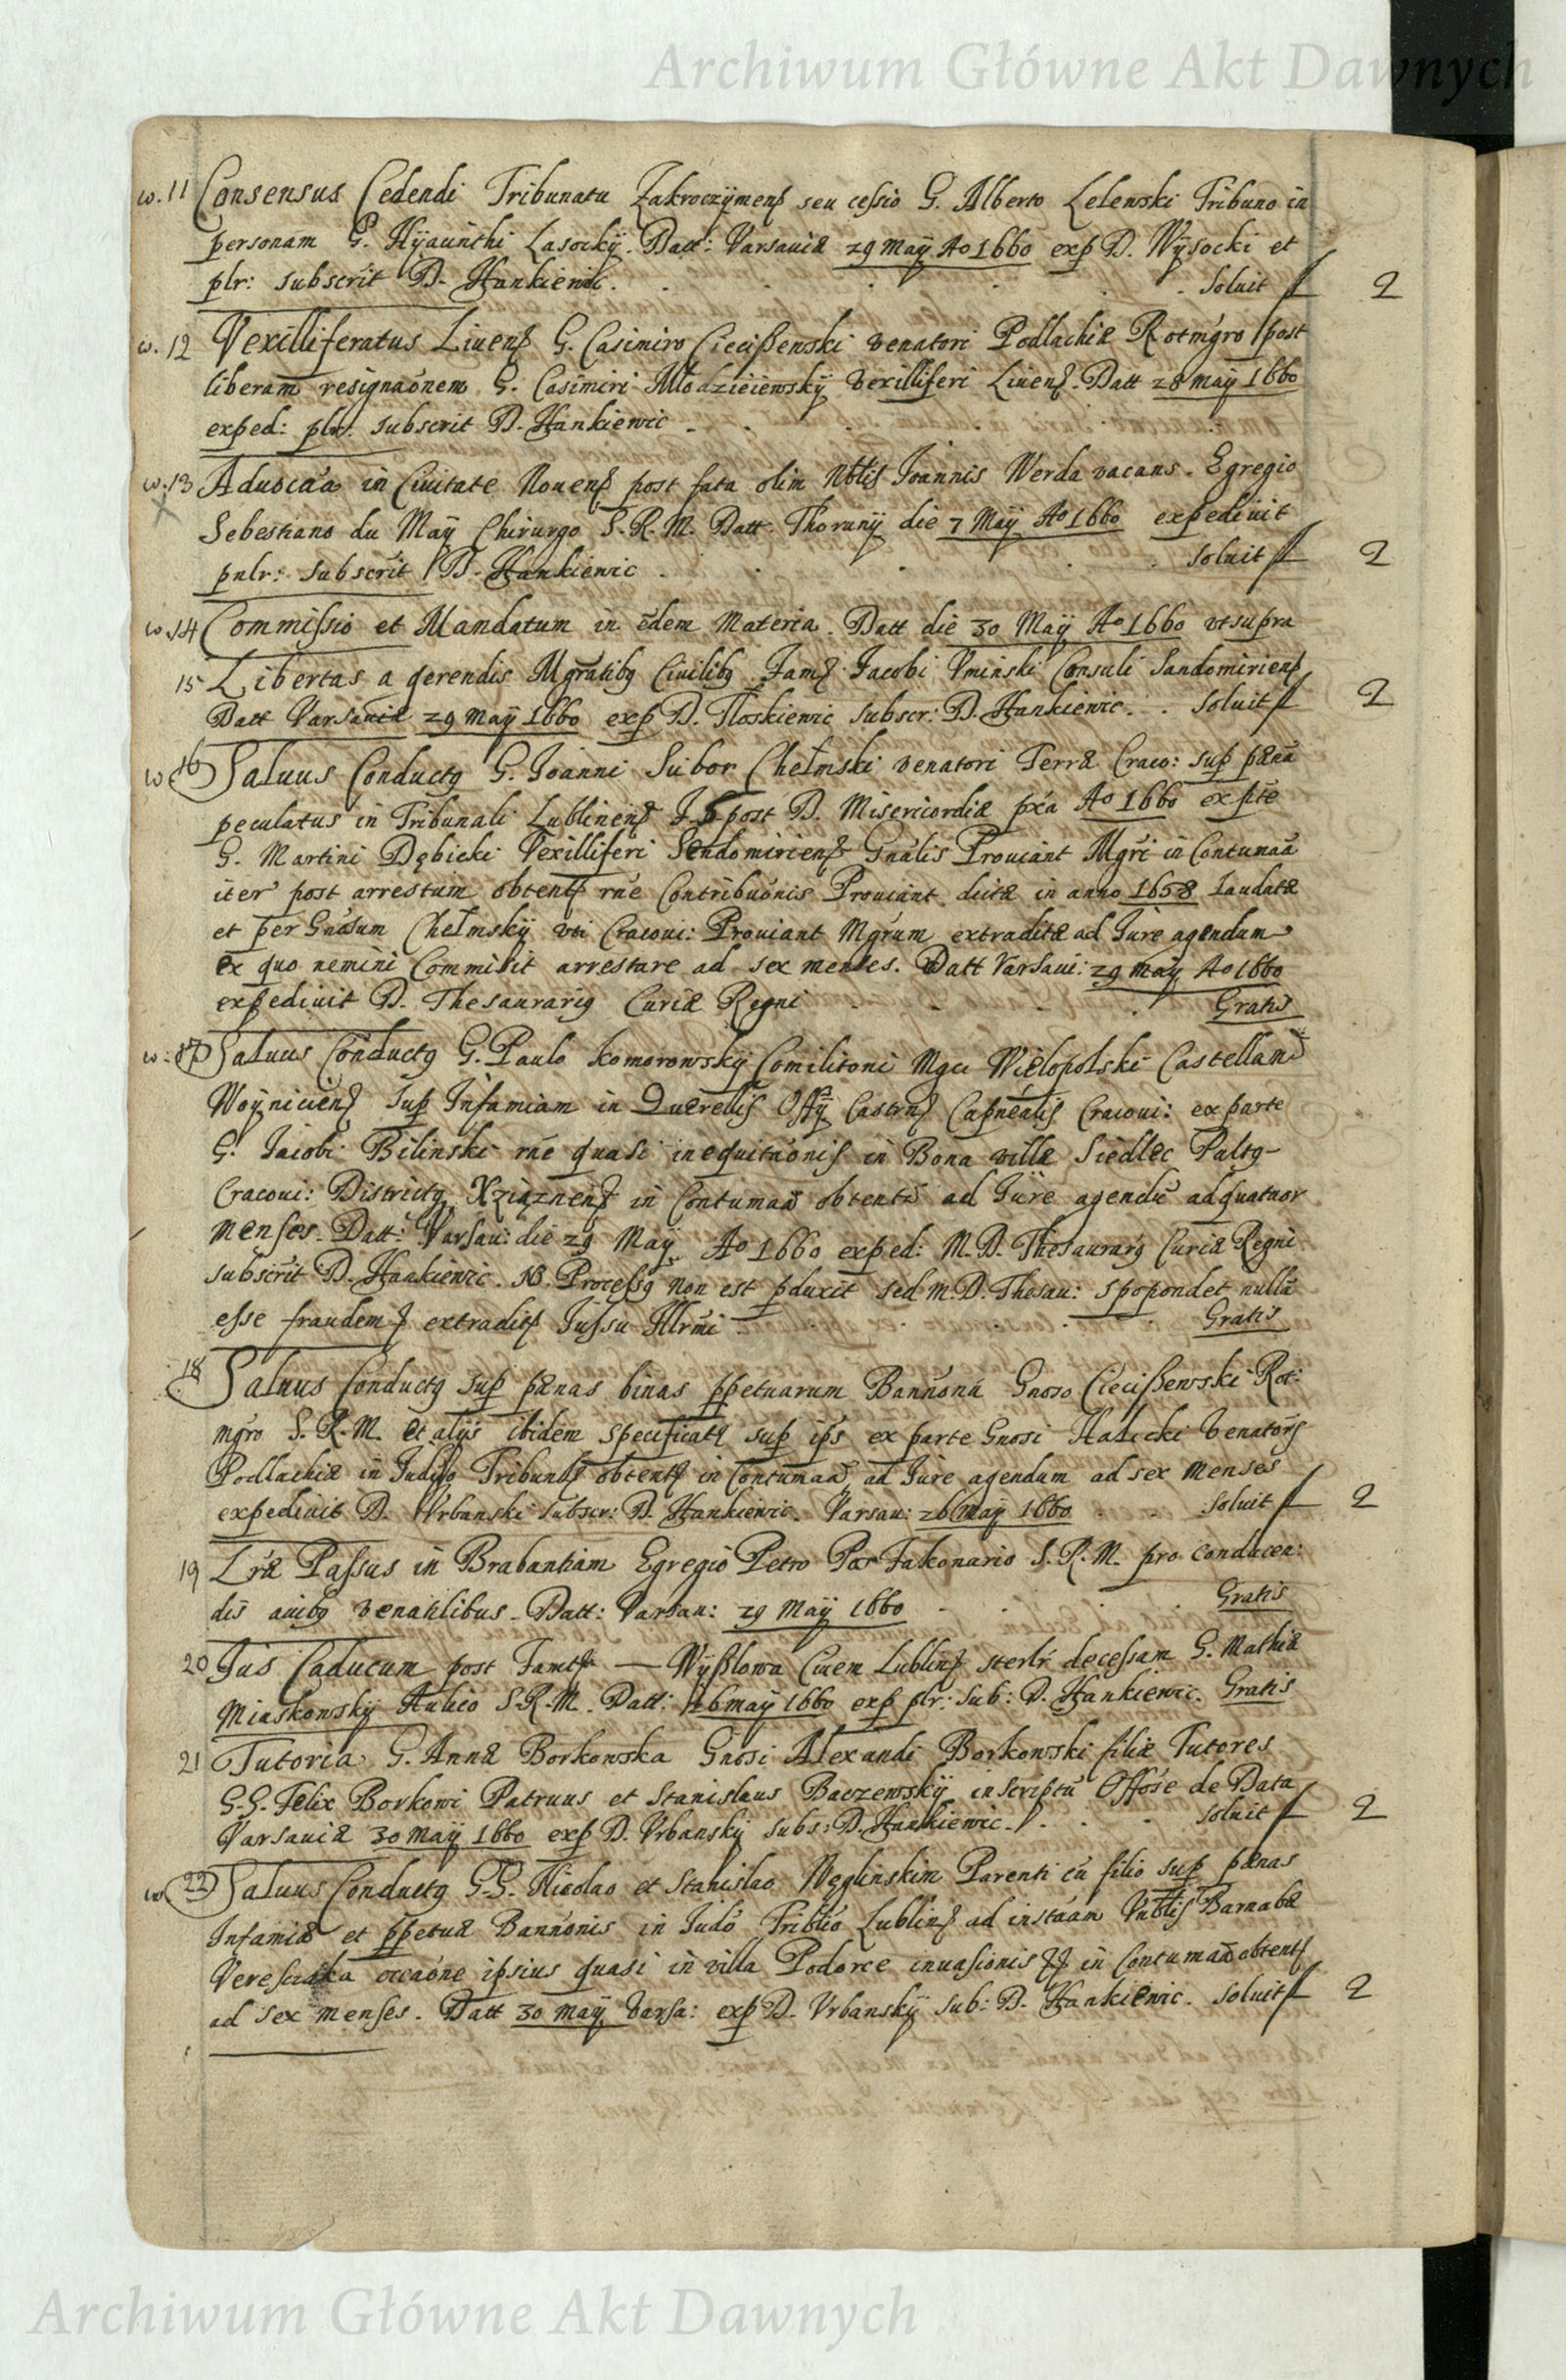 Archiwum Główne Akt Dawnych
w. 11 Consensus Cedendi Tribunatu Zakroczÿmens seu cessio G. Alberto Lelewski Tribuno in
personam G. Hÿacinthi Lasockÿ. Datt: Varsaviæ 29 Maÿ Ao 1660 exp D. Wÿsocki et
plr: subscrit D. Hankiewic. Soluit f 2
w. 12 Vexilliferatus Liuens G. Casimiro Ciecißewski venatori Podlachiæ Rotmgro post
liberam resignaonem G. Casimiri Młodzieiewskÿ Vexilliferi Liuens. Datt 28 maÿ 1660
exped: plr. subscrit D. Hankiewic
w. 13 Aduocaa in Ciuitate Nouens post fata olim Nblis Joannis Werda vacans. Egregio
Sebestiano du Maÿ Chirurgo S. R. M. Datt Thorunÿ die 7 Maÿ Ao 1660 expediuit
pnlr: subscrit D. Hankiewic. Soluit f 2
w. 14 Commissio et Mandatum in edem Materia. Datt die 30 Maÿ Ao 1660 vt supra
15 Libertas a gerendis Mgratibg Ciuilibg Fam Jacobi Vminski Consuli Sandomiriens
Datt Varsauiæ 29 maÿ 1660 exp D. Tloskiewic subscr: D. Hankiewic. Soluit f 2
w 16 Saluus Conductg G. Joanni Scibor Chełmski venatori Terræ Craco: sup pæna
peculatus in Tribunali Lublinens F. 5 post D. Misericordiæ pxa Ao 1660 ex pte
G. Martini Dębicki Vexilliferi Sendomiriens Gnalis Prouiant Mgri in Contumaa
iter post arrestum obtents rne Contribuonis Prouiant dictæ in anno 1658 Laudatæ
et per Gnosum Chełmskÿ vti Cracoui: Prouiant Mgrum extraditæ ad Jure agendum
ex quo nemini Commisit arrestare ad sex menses. Datt Varsaui: 29 maÿ Ao 1660
expediuit D. Thesaurarig Curiæ Regni Gratis
w. 17 Saluus Conductg G. Paulo Komorowskÿ Comilitoni Mgci Wielopolski Castellani
Woÿniciens sup Infamiam in Querellis Offÿ Castrns Capnealis Cracoui: ex parte
G. Jacobi Bilinski rne quasi inequitaonis in Bona villæ Siedlec Paltg
Cracoui: Districtg Xziąznens in Contumaa obtentæ ad Jure agendu ad quatuor
menses. Datt: Varsau: die 29 Maÿ Ao 1660 exped: M. D. Thesaurarg Curiæ Regni
subscrit D. Hankiewic. NB. Processg non est pduxit sed M. D. Thesau: spopondet nulla
esse fraudem extradits Jussu Illrmi Gratis
18 Saluus Conductg sup pænas binas ppetuarum Bannonu Gnoso Ciecißewski Rot:
mgro S. R. M. et alÿs ibidem specificatis sup ips ex parte Gnosi Halicki Venatoris
Podlachiæ in Judiso Tribunls obtents in Contumaa ad Jure agendum ad sex menses
expediuit D. Vrbanski subscr: D. Hankiewic. Varsau: 26 maÿ 1660 Soluit f 2
19 Lræ Passus in Brabantiam Egregio Petro Pas Falkonario S. R. M. pro conducen:
dis auibg venatilibus. Datt: Varsau: 29 Maÿ 1660 Gratis
20 Jus Caducum post Famts — Wÿßlowa Ciuem Lublins sterlr decessam G. Mathiæ
Miaskowskÿ Aulico S. R. M. Datt: 26 maÿ 1660 exp plr: sub: D. Hankiewic. Gratis
21 Tutoria G. Annæ Borkowska Gnosi Alexandi Borkowski filiæ Tutores
G. G. Felix Borkowi Patruus et Stanislaus Baczewskÿ inscriptu Offose de Data
Varsauiæ 30 Maÿ 1660 exp D. Vrbanskÿ subs: D. Hankiewic. Soluit f 2
w 22 Saluus Conductg G. G. Nicolao et Stanislao Węglinskim Parenti cu filio sup pænas
Infamiæ et ppetuæ Bannonis in Judo Triblio Lublins ad instaam Nblis Barnabæ
Veresczaka occaone ipsius quasi in villa Podorce inuasionis in Contumaa obtents
ad sex menses. Datt 30 maÿ Varsa: exp D. Vrbanskÿ sub: D. Hankiewic. Soluit f 2
Archiwum Główne Akt Dawnych